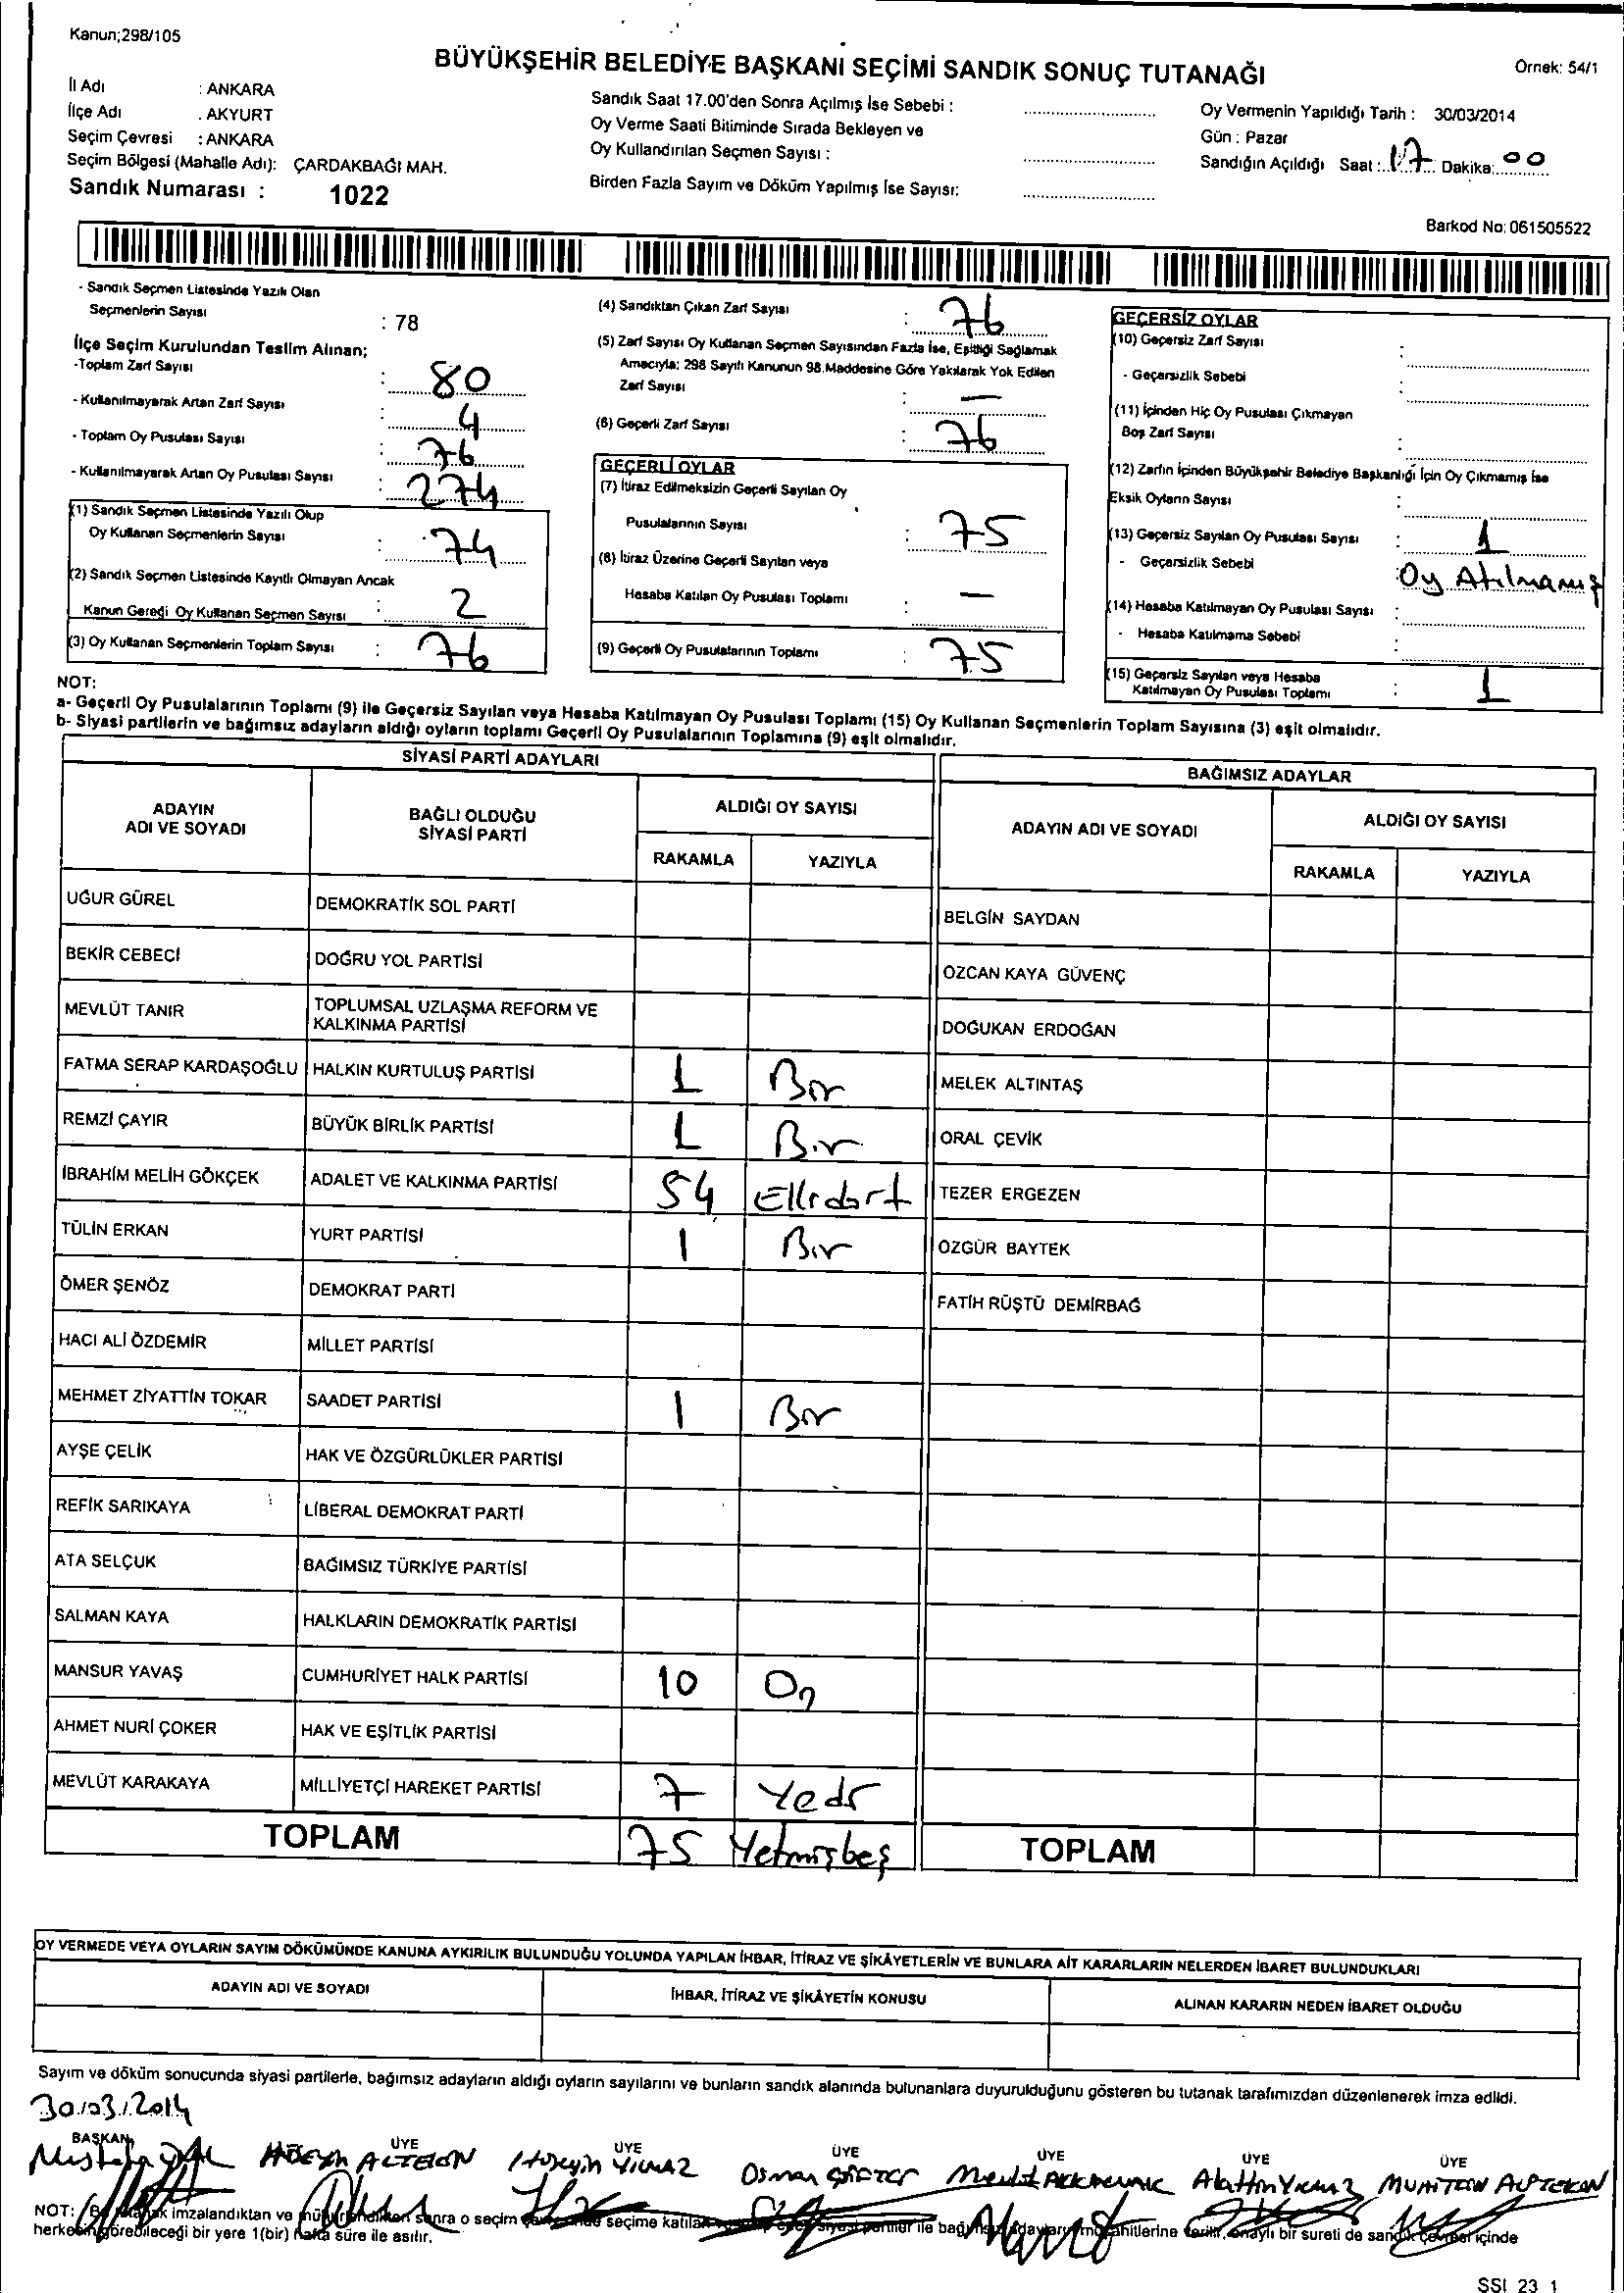 Kanun;298/105
BÜYÜKŞEHİR BELEDİYE BAŞKANI SEÇİMİ SANDIK SONUÇ TUTANAĞI
Örnek: 54/1
İl Adı : ANKARA
İlçe Adı . AKYURT
Seçim Çevresi : ANKARA
Seçim Bölgesi (Mahalle Adı): ÇARDAKBAĞI MAH.
Sandık Numarası : 1022
Sandık Saat 17.00'den Sonra Açılmış İse Sebebi :
Oy Verme Saati Bitiminde Sırada Bekleyen ve
Oy Kullandırılan Seçmen Sayısı :
Birden Fazla Sayım ve Döküm Yapılmış İse Sayısı:
Oy Vermenin Yapıldığı Tarih : 30/03/2014
Gün : Pazar
Sandığın Açıldığı Saat : 17 Dakika: 00
Barkod No: 061505522
- Sandık Seçmen Listesinde Yazılı Olan
Seçmenlerin Sayısı : 78
İlçe Seçim Kurulundan Teslim Alınan;
-Toplam Zarf Sayısı : 80
- Kullanılmayarak Artan Zarf Sayısı : 4
- Toplam Oy Pusulası Sayısı : 76
- Kullanılmayarak Artan Oy Pusulası Sayısı : 274
(1) Sandık Seçmen Listesinde Yazılı Olup
Oy Kullanan Seçmenlerin Sayısı : 74
(2) Sandık Seçmen Listesinde Kayıtlı Olmayan Ancak
Kanun Gereği Oy Kullanan Seçmen Sayısı : 2
(3) Oy Kullanan Seçmenlerin Toplam Sayısı : 76
(4) Sandıktan Çıkan Zarf Sayısı : 76
(5) Zarf Sayısı Oy Kullanan Seçmen Sayısından Fazla İse, Eşitliği Sağlamak
Amacıyla; 298 Sayılı Kanunun 98.Maddesine Göre Yakılarak Yok Edilen
Zarf Sayısı : —
(6) Geçerli Zarf Sayısı : 76
GEÇERLİ OYLAR
(7) İtiraz Edilmeksizin Geçerli Sayılan Oy
Pusulalarının Sayısı : 75
(8) İtiraz Üzerine Geçerli Sayılan veya
Hesaba Katılan Oy Pusulası Toplamı : —
(9) Geçerli Oy Pusulalarının Toplamı : 75
GEÇERSİZ OYLAR
(10) Geçersiz Zarf Sayısı :
- Geçersizlik Sebebi :
(11) İçinden Hiç Oy Pusulası Çıkmayan
Boş Zarf Sayısı :
(12) Zarfın İçinden Büyükşehir Belediye Başkanlığı İçin Oy Çıkmamış İse
Eksik Oyların Sayısı :
(13) Geçersiz Sayılan Oy Pusulası Sayısı : 1
- Geçersizlik Sebebi : Oy Atılmamış
(14) Hesaba Katılmayan Oy Pusulası Sayısı :
- Hesaba Katılmama Sebebi :
(15) Geçersiz Sayılan veya Hesaba
Katılmayan Oy Pusulası Toplamı : 1
NOT:
a- Geçerli Oy Pusulalarının Toplamı (9) ile Geçersiz Sayılan veya Hesaba Katılmayan Oy Pusulası Toplamı (15) Oy Kullanan Seçmenlerin Toplam Sayısına (3) eşit olmalıdır.
b- Siyasi partilerin ve bağımsız adayların aldığı oyların toplamı Geçerli Oy Pusulalarının Toplamına (9) eşit olmalıdır.
SİYASİ PARTİ ADAYLARI
ADAYIN ADI VE SOYADI BAĞLI OLDUĞU SİYASİ PARTİ ALDIĞI OY SAYISI
RAKAMLA YAZIYLA
UĞUR GÜREL DEMOKRATİK SOL PARTİ
BEKİR CEBECİ DOĞRU YOL PARTİSİ
MEVLÜT TANIR TOPLUMSAL UZLAŞMA REFORM VE KALKINMA PARTİSİ
FATMA SERAP KARDAŞOĞLU HALKIN KURTULUŞ PARTİSİ 1 Bir
REMZİ ÇAYIR BÜYÜK BİRLİK PARTİSİ 1 Bir
İBRAHİM MELİH GÖKÇEK ADALET VE KALKINMA PARTİSİ 54 Ellidört
TÜLİN ERKAN YURT PARTİSİ 1 Bir
ÖMER ŞENÖZ DEMOKRAT PARTİ
HACI ALİ ÖZDEMİR MİLLET PARTİSİ
MEHMET ZİYATTİN TOKAR SAADET PARTİSİ 1 Bir
AYŞE ÇELİK HAK VE ÖZGÜRLÜKLER PARTİSİ
REFİK SARIKAYA LİBERAL DEMOKRAT PARTİ
ATA SELÇUK BAĞIMSIZ TÜRKİYE PARTİSİ
SALMAN KAYA HALKLARIN DEMOKRATİK PARTİSİ
MANSUR YAVAŞ CUMHURİYET HALK PARTİSİ 10 On
AHMET NURİ ÇOKER HAK VE EŞİTLİK PARTİSİ
MEVLÜT KARAKAYA MİLLİYETÇİ HAREKET PARTİSİ 7 Yedi
TOPLAM 75 Yetmişbeş
BAĞIMSIZ ADAYLAR
ADAYIN ADI VE SOYADI ALDIĞI OY SAYISI
RAKAMLA YAZIYLA
BELGİN SAYDAN
ÖZCAN KAYA GÜVENÇ
DOĞUKAN ERDOĞAN
MELEK ALTINTAŞ
ORAL ÇEVİK
TEZER ERGEZEN
ÖZGÜR BAYTEK
FATİH RÜŞTÜ DEMİRBAĞ
TOPLAM
OY VERMEDE VEYA OYLARIN SAYIM DÖKÜMÜNDE KANUNA AYKIRILIK BULUNDUĞU YOLUNDA YAPILAN İHBAR, İTİRAZ VE ŞİKÂYETLERİN VE BUNLARA AİT KARARLARIN NELERDEN İBARET BULUNDUKLARI
ADAYIN ADI VE SOYADI İHBAR, İTİRAZ VE ŞİKÂYETİN KONUSU ALINAN KARARIN NEDEN İBARET OLDUĞU
Sayım ve döküm sonucunda siyasi partilerle, bağımsız adayların aldığı oyların sayılarını ve bunların sandık alanında bulunanlara duyurulduğunu gösteren bu tutanak tarafımızdan düzenlenerek imza edildi.
30.03.2014
BAŞKAN ÜYE ÜYE ÜYE ÜYE ÜYE ÜYE
Mustafa Hüseyin Hüseyin YILMAZ Osman Alattin Yılmaz
NOT: imzalandıktan ve sonra o seçim seçime katılan siyasi partiler ile bağımsız adayların müşahitlerine verilir, onaylı bir sureti de sandık çevresi içinde
herkesin görebileceği bir yere 1(bir) hafta süre ile asılır.
SSI 23 1